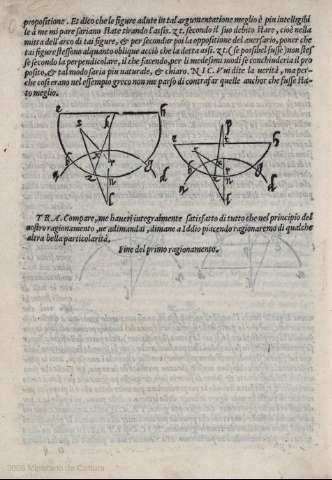 propositione. Et dico che le figure adute in tal argumentatione meglio è piu intelligibil
le à me mi pare sariano state tirando l'assis. z t. secondo il suo debito stare, cioè nella
mitta dell'arco di tai figure, & per secondar poi la oppositione del aversario, poner che
tai figure stessono alquanto oblique acciò che la detta assis. z t. (se possibel fusse) non stes=
se secondo la perpendicolare, il che facendo, per li medesimi modi se conchiuderia il pro
posito, & tal modo saria piu naturale, & chiaro. N I C. Vui dite la verità, ma per-
che cosi erano nel essempio greco non me parso di contrafar quelle anchor che fusse sta=
to meglio.
T R A. Compare, me haueti integralmente satisfatto di tutto che nel principio del
nostro ragionamento, ue adimandai, dimane a Iddio piacendo ragionaremo di qualche
altra bella particolarità.
Fine del primo ragionamento.
Ministerio de Cultura